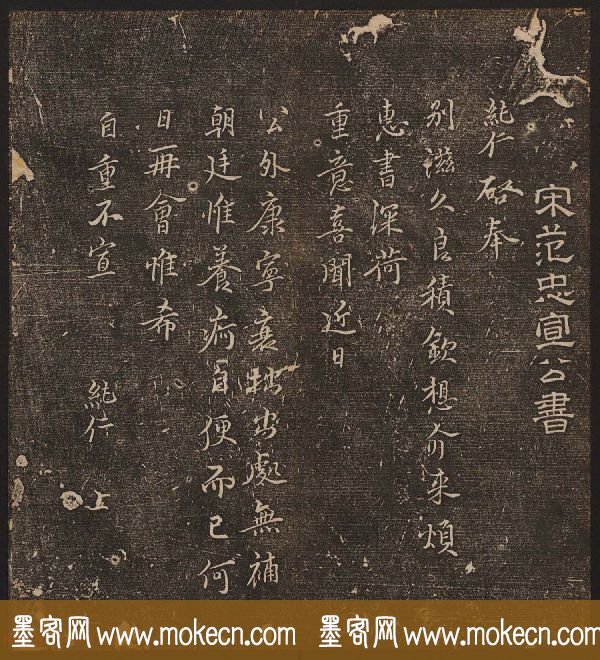 宋范忠宣公書
純仁啓奉
別滋久良積欽想俞來煩
惠書深荷
重意喜聞近日
公外康寧衰拙出處無補
朝廷惟養痾自便而已何
日再會惟希
自重不宣
純仁 上
墨客网 www.mokecn.com 墨客网 www.mokecn.com